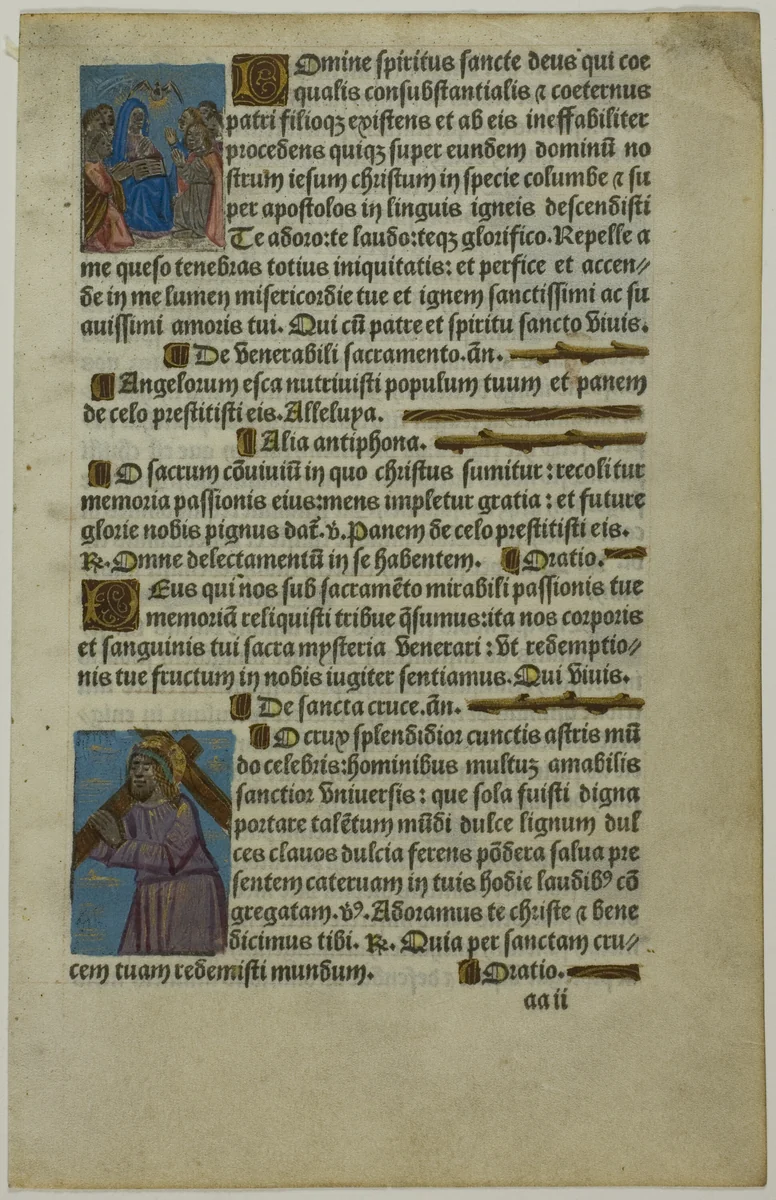 DOmine spiritus sancte deus qui coe
qualis consubstantialis ⁊ coeternus
patri filioqꝫ existens et ab eis ineffabiliter
procedens quiqꝫ super eundem dominū no
strum iesum christum in specie columbe ⁊ su
per apostolos in linguis igneis descendisti
Te adoro:te laudo:teqꝫ glorifico. Repelle a
me queso tenebras totius iniquitatis: et perfice et accen⸗
de in me lumen misericordie tue et ignem sanctissimi ac su
auissimi amoris tui. Qui cū patre et spiritu sancto viuis.
¶ De venerabili sacramento. añ.
¶ Angelorum esca nutriuisti populum tuum et panem
de celo prestitisti eis. Alleluya.
¶ Alia antiphona.
¶ O sacrum cōuiuiū in quo christus sumitur: recolitur
memoria passionis eius:mens impletur gratia: et future
glorie nobis pignus dat᷑. v̄. Panem de celo prestitisti eis.
℞. Omne delectamentū in se habentem. ¶ Oratio.
DEus qui nos sub sacramēto mirabili passionis tue
memoriā reliquisti tribue q̄sumus:ita nos corporis
et sanguinis tui sacra mysteria venerari: vt redemptio⸗
nis tue fructum in nobis iugiter sentiamus. Qui viuis.
¶ De sancta cruce. añ.
¶ O crux splendidior cunctis astris mū
do celebris:hominibus multuꝫ amabilis
sanctior vniuersis: que sola fuisti digna
portare talētum mūdi dulce lignum dul
ces clauos dulcia ferens pōdera salua pre
sentem cateruam in tuis hodie laudibꝰ cō
gregatam. vꝰ. Adoramus te christe ⁊ bene
dicimus tibi. ℞. Quia per sanctam cru⸗
cem tuam redemisti mundum. ¶ Oratio.
aa ii